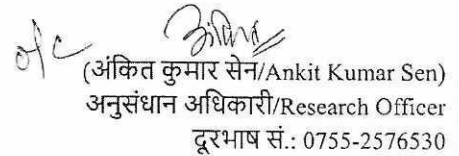 o/c अंकित
(अंकित कुमार सेन/Ankit Kumar Sen)
अनुसंधान अधिकारी/Research Officer
दूरभाष सं.: 0755-2576530